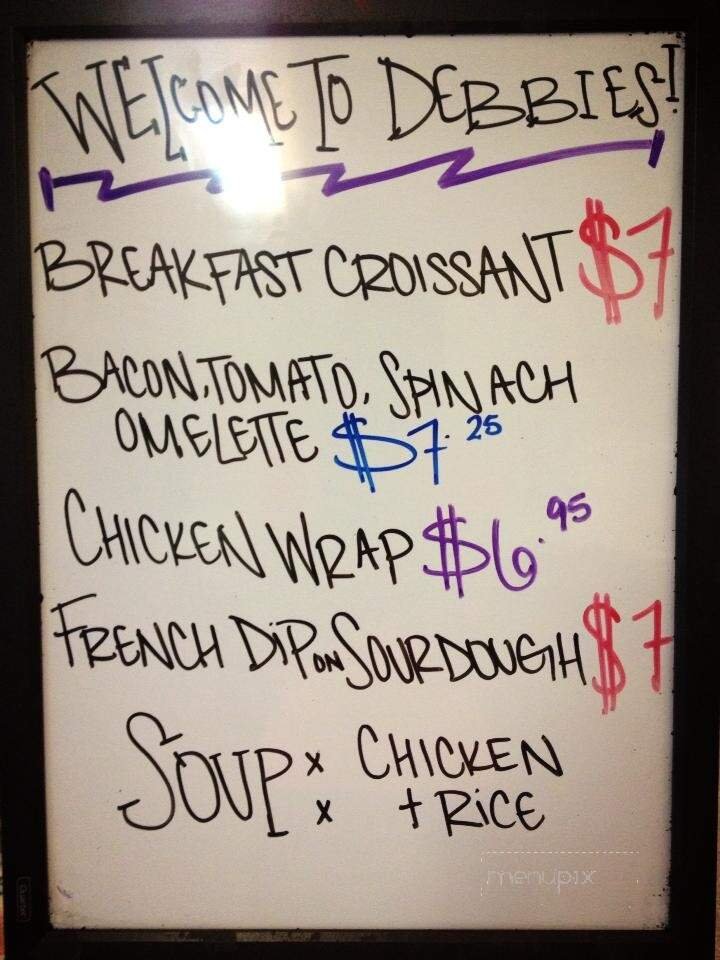 WELCOME TO DEBBIES!
BREAKFAST CROISSANT $7
BACON, TOMATO, SPINACH
OMELETTE $7.25
CHICKEN WRAP $6.95
FRENCH DIP ON SOURDOUGH $7
SOUP : CHICKEN
+ RICE
menupix
Quartet